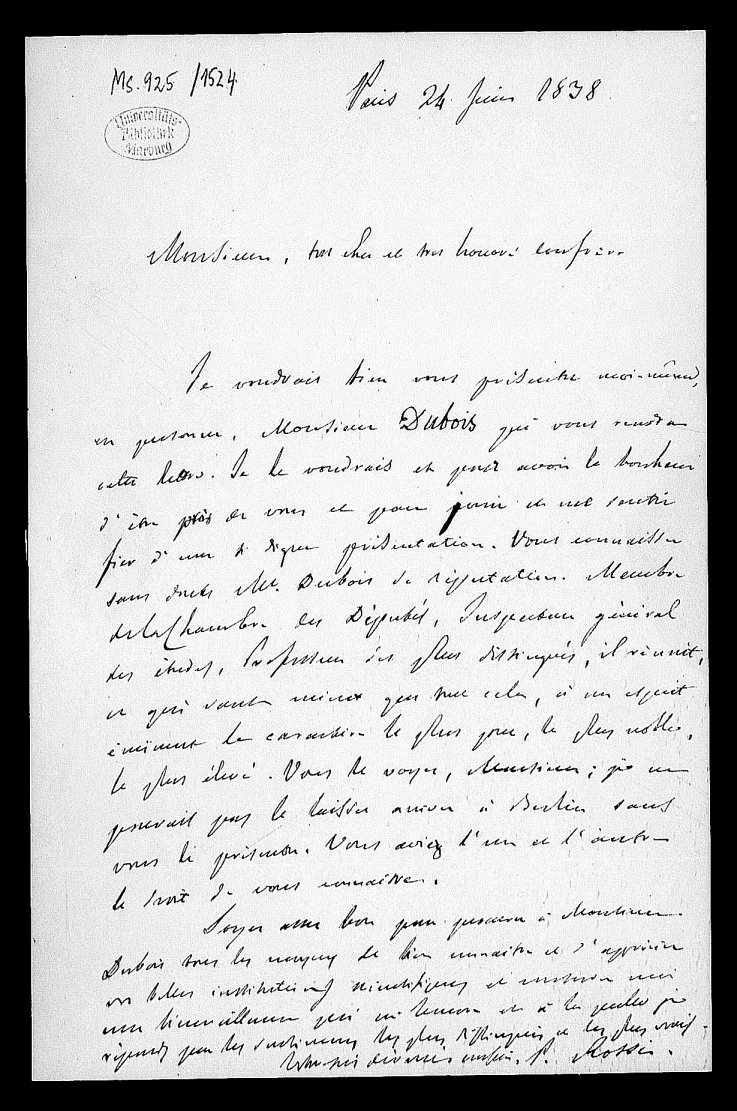 Ms. 925 /1524
Universitäts-
Bibliothek
Marburg
Paris 24 Juin 1838.
Monsieur, très cher et très honoré confrère
Je voudrais bien vous présenter moi-même,
en personne, Monsieur Dubois qui vous remettra
cette lettre. Je le voudrais et pour avoir le bonheur
d'être près de vous et pour jouir et me sentir
fier d'une si digne présentation. Vous connaissez
sans doute Mr. Dubois de réputation. Membre
de la Chambre des Députés, Inspecteur général
des études, Professeur des plus distingués, il réunit,
ce qui vaut mieux que tout cela, à un esprit
éminent le caractère le plus pur, le plus noble,
le plus élevé. Vous le voyez, Monsieur; je ne
pouvais pas le laisser arriver à Berlin sans
vous le présenter. Vous aviez l'un et l'autre
le droit de vous connaître.
Soyez assez bon pour procurer à Monsieur
Dubois tous les moyens de bien connaître et d'apprécier
vos belles institutions scientifiques et
une bienveillance qui m'honore et à laquelle je
réponds par les sentimens les plus distingués et les plus
Votre très dévoué confrère, P. Rossi.